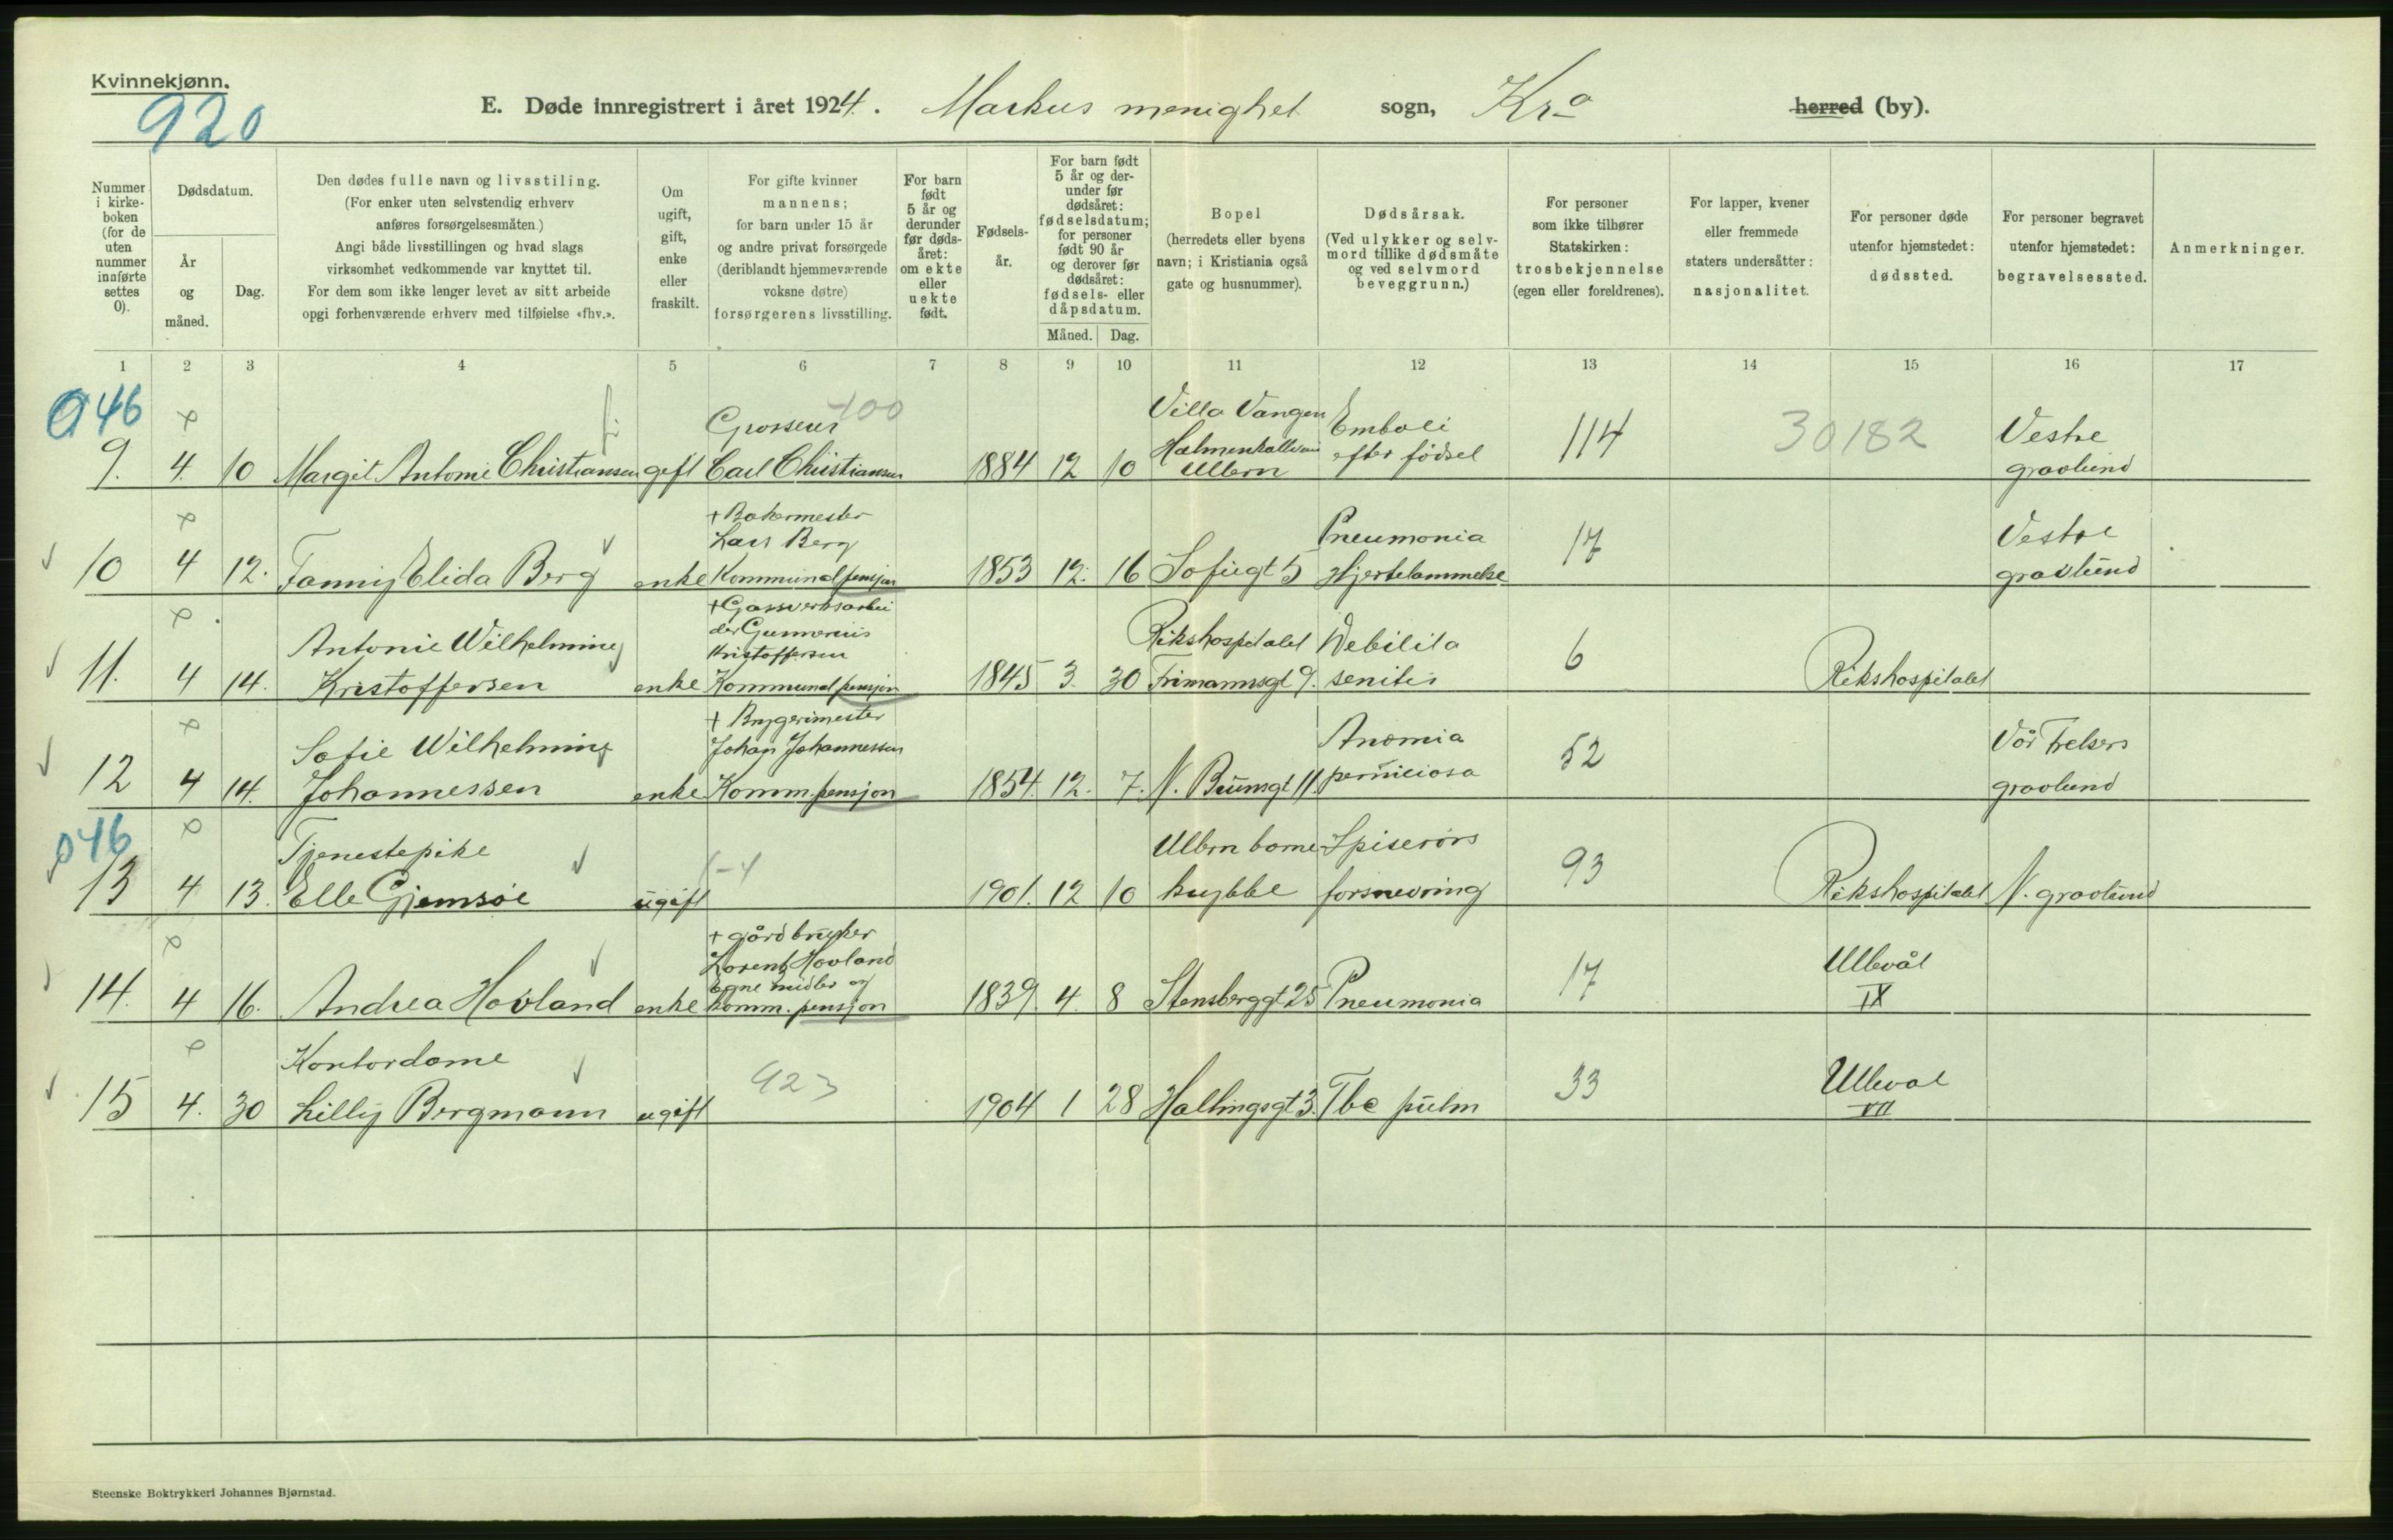 Kvinnekjønn.
920
E. Døde innregistrert i året 1924. Markus menighet sogn, Kra herred (by).
Nummer i kirke- boken (for de uten nummer innførte settes 0).
Dødsdatum.
År og måned.
Dag.
Den dødes fulle navn og livsstiling.
(For enker uten selvstendig erhverv
anføres forsørgelsesmåten.)
Angi både livsstillingen og hvad slags
virksomhet vedkommende var knyttet til.
For dem som ikke lenger levet av sitt arbeide
opgi forhenværende erhverv med tilføielse «fhv.».
Om ugift, gift, enke eller fraskilt.
For gifte kvinner
mannens;
for barn under 15 år
og andre privat forsørgede
(deriblandt hjemmeværende
voksne døtre)
forsørgerens livsstilling.
For barn født 5 år og derunder før døds- året: om ekte eller uekte født.
Fødsels- år.
For barn født
5 år og der-
under før
dødsåret:
fødselsdatum;
for personer
født 90 år
og derover før
dødsåret:
fødsels- eller
dåpsdatum.
Måned. Dag.
Bopel
(herredets eller byens
navn; i Kristiania også
gate og husnummer).
Dødsårsak.
(Ved ulykker og selv-
mord tillike dødsmåte
og ved selvmord
beveggrunn.)
For personer
som ikke tilhører
Statskirken:
trosbekjennelse
(egen eller foreldrenes).
For lapper, kvener
eller fremmede
staters undersåtter:
nasjonalitet.
For personer døde
utenfor hjemstedet:
dødssted.
For personer begravet
utenfor hjemstedet:
begravelsessted.
Anmerkninger.
1 2 3 4 5 6 7 8 9 10 11 12 13 14 15 16 17
046 Grosserer 400 Villa Vangen Emboli 114 30182 Vestre
9. 4. 10 Margit Antonie Christiansen gift Carl Christiansen 1884 12 10 Ullern efter fødsel gravlund
+ Bakermester
Lars Berg Pneumonia 17 Vestre
10 4 12. Fanny Elida Berg enke Kommunal pensjon 1853 12. 16 Sofiegt 5 Hjertelammelse gravlund
+ Gassverksarbei
der Gunnerius
Antonie Wilhelmine Kristoffersen Rikshospitalet Debilita 6
11. 4 14. Kristoffersen enke Kommunal pensjon 1845 3. 30 Frimannsgt 9. senilis Rikshospitalet
+ Bryggerimester
Sofie Wilhelmine Johan Johannessen Anæmia 52 Vår Frelsers
12 4 14. Johannessen enke Komm. pensjon 1854. 12. 7. N. Bruunsgt 11. perniciosa gravlund
046 Tjenestepike 1-4 Ullern barne Spiserørs 93
13 4 13. Elle Gjemsøe ugift 1901. 12 10 krybbe forsnevring Rikshospitalet N. gravlund
+ gårdbruker
Lorentz Hovland
Egne midler og 17 Ullevål
14. 4 16. Andrea Hovland enke komm. pensjon 1839. 4. 8 Stensberggt 25 Pneumonia IX
Kontordame 923 33 Ulleval
15 4. 30 Lilly Bergmann ugift 1904 1 28 Hallingsgt 3. Tbc pulm VII
Steenske Boktrykkeri Johannes Bjørnstad.